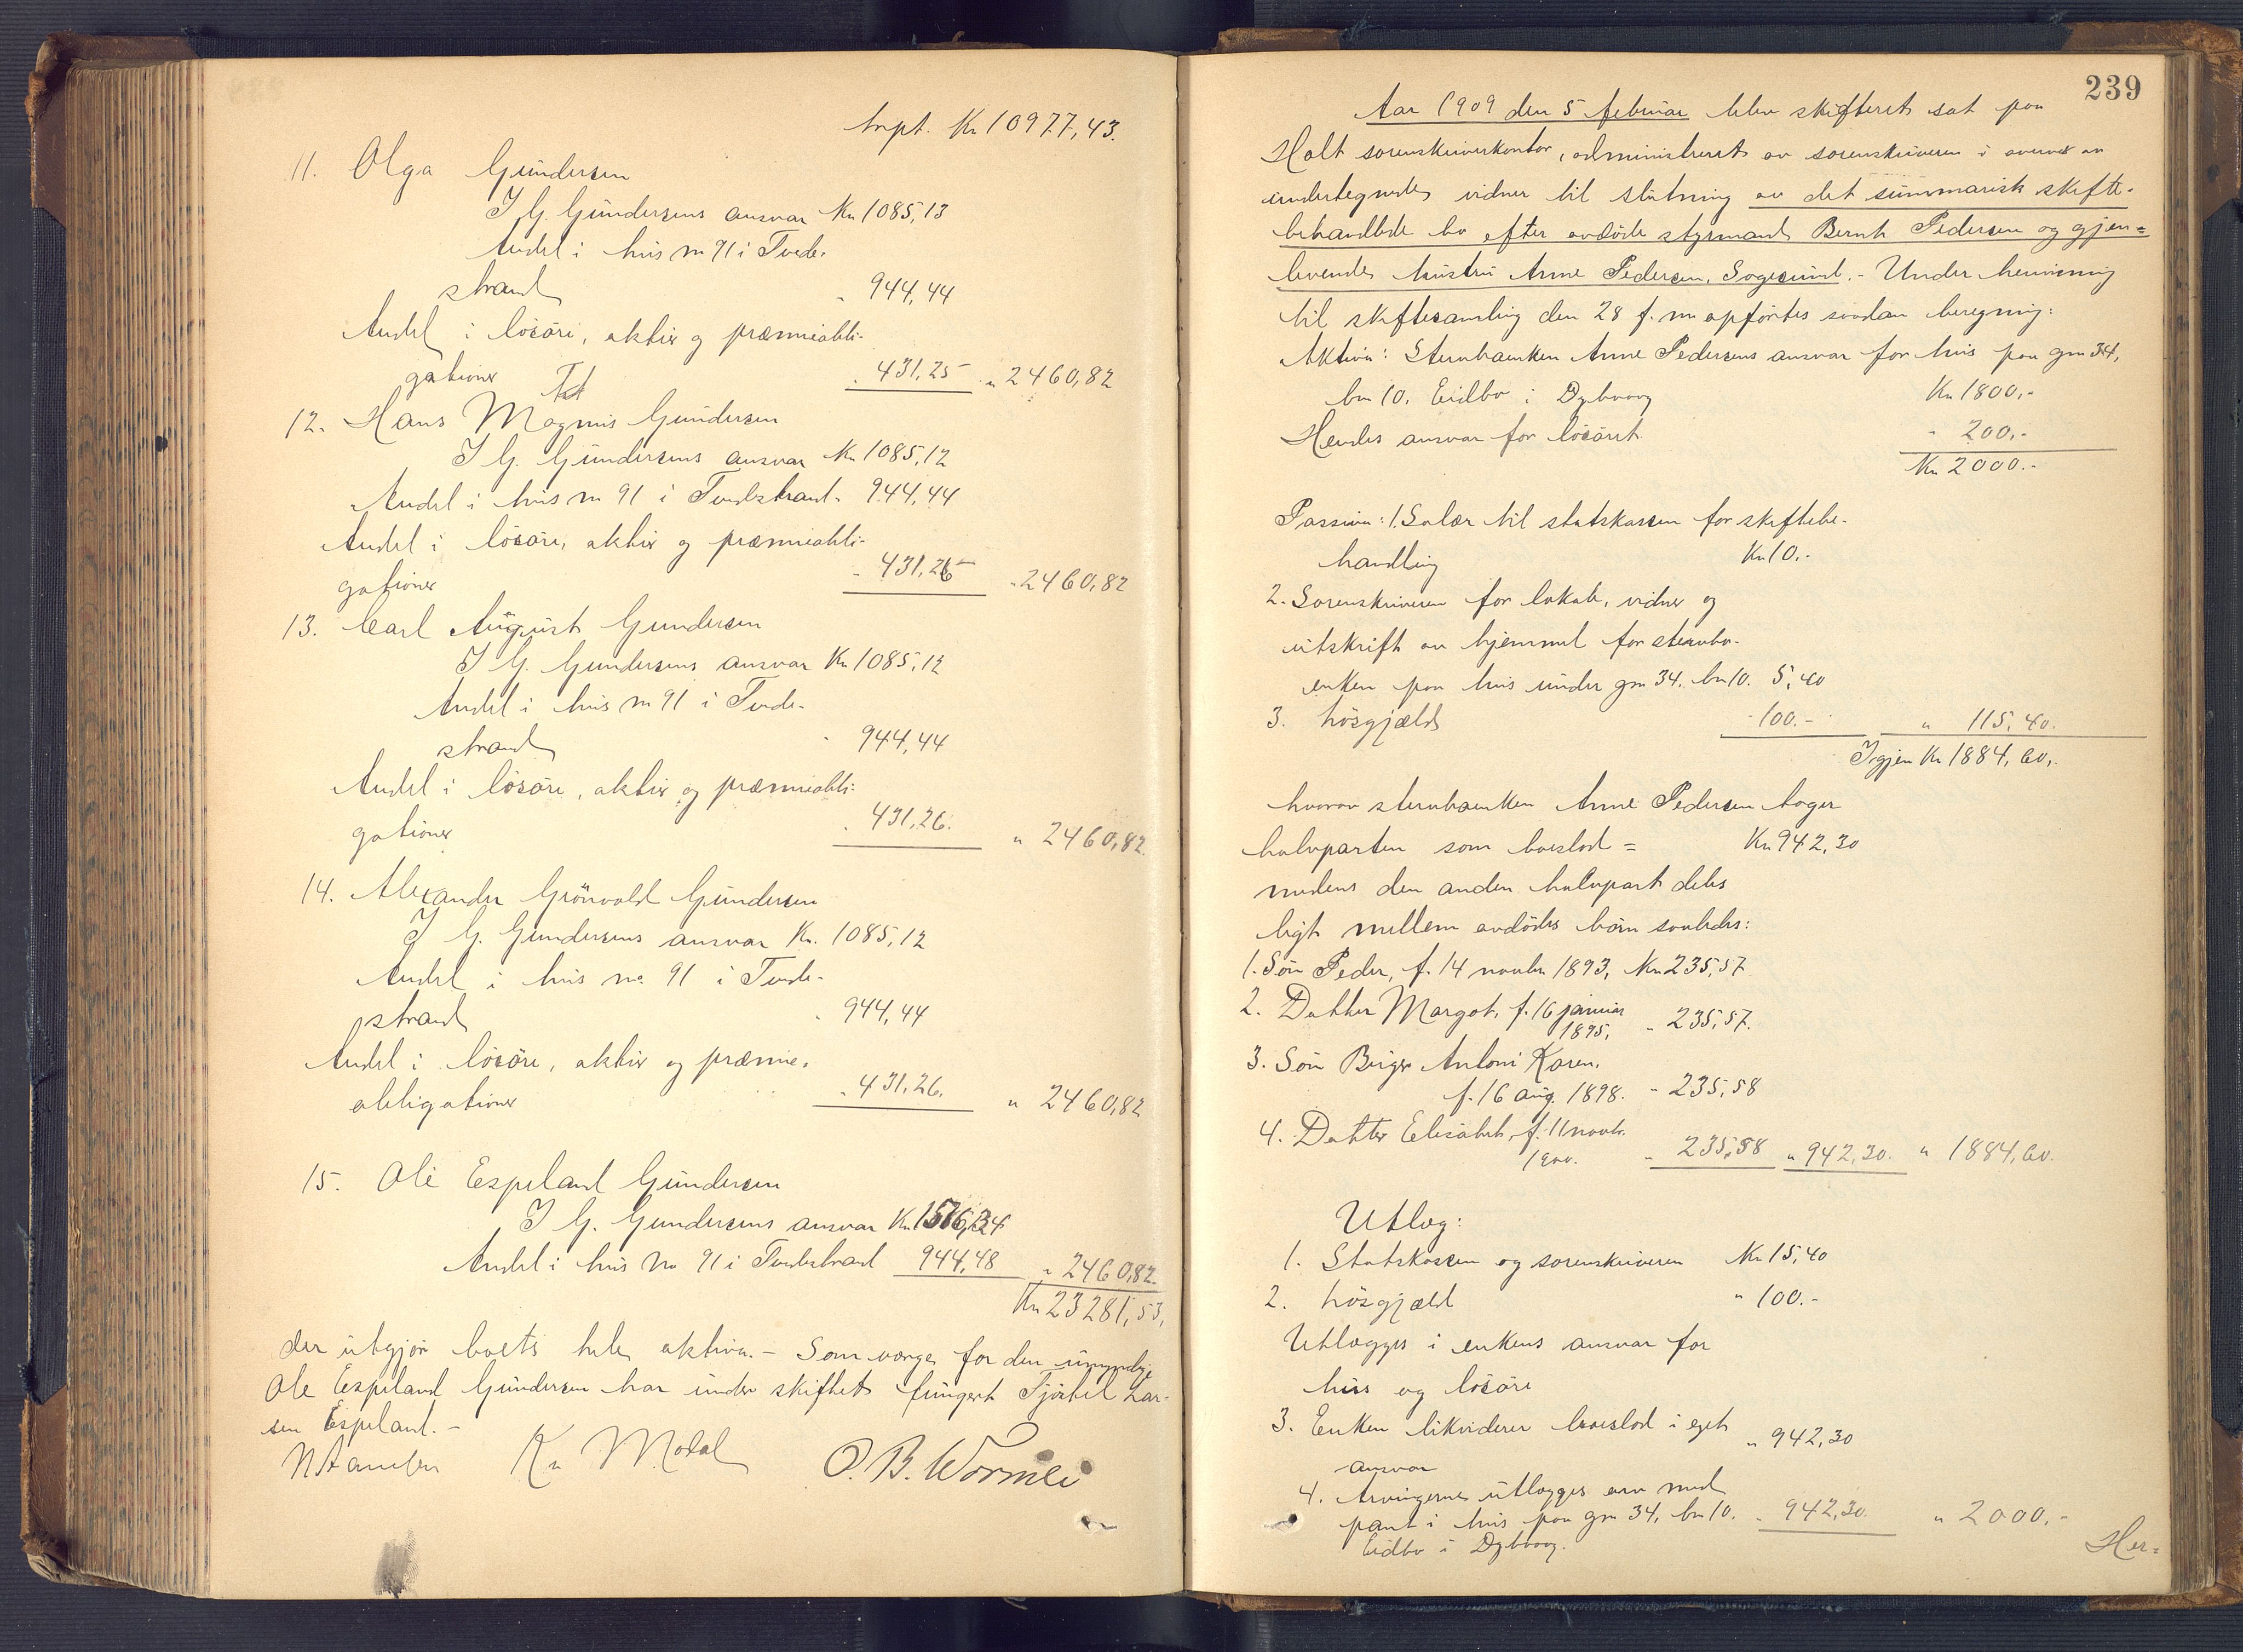 trpt. Kr 10977,43.
11. Olga Gundersen
I G. Gundersens ansvar Kr 1085,13
Andel i hus no 91 i Tvede-
strand " 944,44
Andel i løsøre, aktier og præmieobli-
gationer " 431,25 " 2460,82
12. Hans Magnus Gundersen
I G. Gundersens ansvar Kr 1085,12
Andel i hus no 91 i Tvedestrand " 944,44
Andel i løsøre, aktier og præmieobli-
gationer " 431,26 " 2460,82
13. Carl August Gundersen
I G. Gundersens ansvar Kr 1085,12
Andel i hus no 91 i Tvede-
strand " 944,44
Andel i løsøre, aktier og præmieobli-
gationer " 431,26. " 2460,82
14. Alexander Grönvold Gundersen
I G. Gundersens ansvar Kr. 1085,12
Andel i hus no 91 i Tvede-
strand " 944,44
Andel i løsøre, aktier og præmie-
obligationer " 431,26. " 2460,82
15. Ole Espeland Gundersen
I G. Gundersens ansvar Kr 1516,34
Andel i hus no 91 i Tvedestrand 944,48 " 2460,82.
Kr 23281,53,
der utgjør boets hele aktiva. - Som verge for den umyndige
Ole Espeland Gundersen har under skiftet fungert Tjöstel Lar-
sen Espeland. -
Kr Modal O. B. Wormli
239
Aar 1909 den 5 februar blev skifteret sat paa
Holt sorenskriverkontor, administreret av sorenskriveren i overvær av
undertegnede vidner til slutning av det summarisk skifte-
behandlede bo efter avdøde styrmand Bernt Pedersen og gjen-
levende hustru Anne Pedersen, Sagesund. - Under henvisning
til skiftesamling den 28 f. m. opførtes saadan beregning:
Aktiva: Stervboenken Anne Pedersens ansvar for hus paa gno 34,
bno 10, Eidbo i Dybvaag Kr 1800,-
Hendes ansvar for løsøret " 200,-
Kr 2000.-
Passiva: 1. Salær til statskassen for skiftebe-
handling Kr 10.-
2. Sorenskriveren for lokale, vidner og
utskrift av hjemmel for stervbo-
enken paa hus under gno 34, bno 10. 5,40
3. Husgjæld " 100.- " 115,40.
Igjen Kr 1884,60,-
hvorav stervboenken Anne Pedersen tager
halvparten som boeslod = Kr 942,30
medens den anden halvpart deles
ligt mellem avdødes børn saaledes:
1. Søn Peder, f. 14 novbr 1893, Kr 235,57
2. Datter Margot, f. 16 januar
1895, " 235,57.
3. Søn Birger Antoni Karen,
f. 16 aug. 1898. " 235,58
4. Datter Elisabet, f. 11 novbr.
1900. " 235,58 " 942,30. " 1884,60.
Utlæg:
1. Statskassen og sorenskriveren Kr 15,40
2. Husgjæld " 100.-
Utlægges i enkens ansvar for
hus og løsøre
3. Enken likviderer boeslod i eget
ansvar " 942,30
4. Arvingerne utlægges arv med
pant i hus paa gno 34, bno 10. " 942,30. " 2000.-
Eidbo i Dybvaag.
Her-